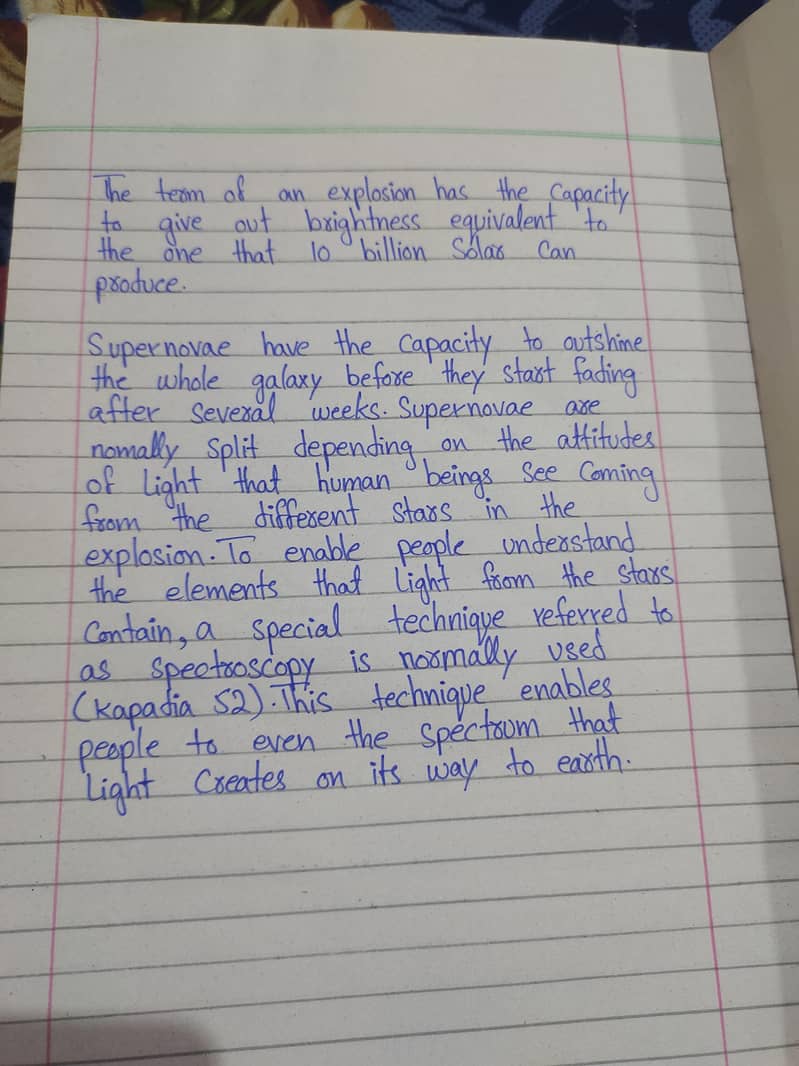 The term of an explosion has the capacity
to give out brightness equivalent to
the one that 10 billion Solar Can
produce.
Supernovae have the capacity to outshine
the whole galaxy before they start fading
after several weeks. Supernovae are
nomally split depending on the attitudes
of light that human beings see coming
from the different stars in the
explosion. To enable people understand
the elements that light from the stars
contain, a special technique referred to
as spectroscopy is normally used
(Kapadia 52). This technique enables
people to even the spectrum that
light creates on its way to earth.